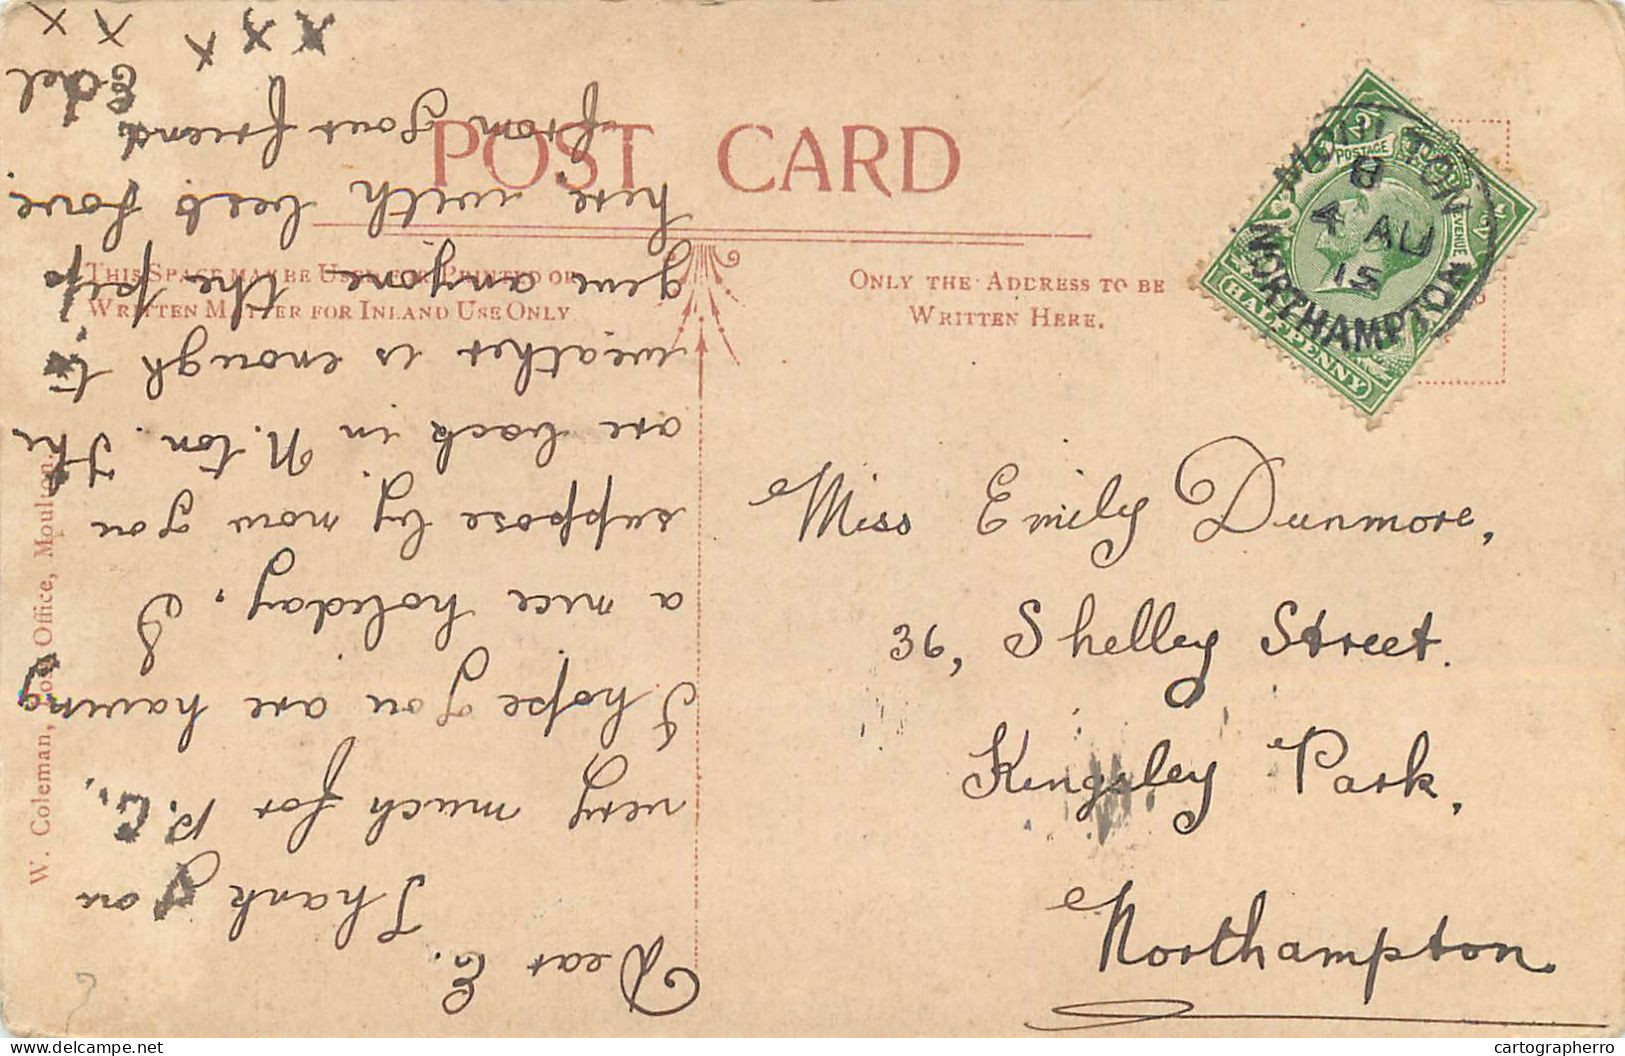 POST CARD
THIS SPACE MAY BE USED FOR PRINTED OR
WRITTEN MATTER FOR INLAND USE ONLY
ONLY THE ADDRESS TO BE
WRITTEN HERE.
POSTAGE
REVENUE
HALFPENNY
MOULTON
8
4 AU
15
NORTHAMPTON
Miss Emily Dunmore,
36, Shelley Street.
Kingsley Park,
Northampton
Dear E.
Thank you
very much for P.C.,
I hope you are having
a nice holiday. I
suppose by now you
are back in N.ton. The
weather is enough to
give anyone the pip
here with best love
from your friend
x x x x x
W. Coleman, Post Office, Moulton.
cartographerro